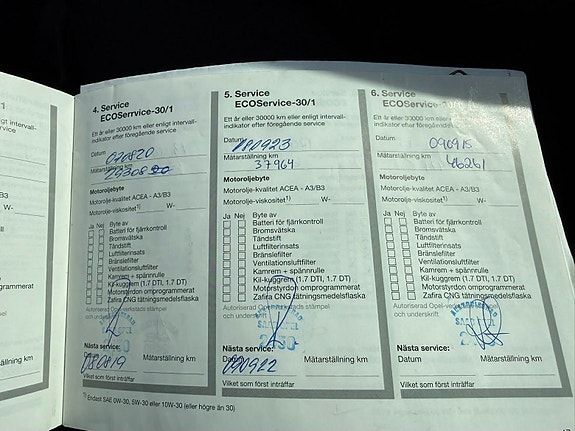 4. Service
ECOSerrvice-30/1
Ett år eller 30000 km eller enligt intervall-
indikator efter föregående service
Datum
070820
Mätarställning km
Motoroljebyte
Motorolje-kvalitet ACEA - A3/B3
Motorolje-viskositet¹⁾ W-
Ja Nej Byte av
Batteri för fjärrkontroll
Bromsvätska
Tändstift
Luftfilterinsats
Bränslefilter
Ventilationsluftfilter
Kamrem + spännrulle
Kil-kuggrem (1.7 DTI, 1.7 DT)
Motorstyrdon omprogrammerat
Zafira CNG tätningsmedelsflaska
Auktoriserad Opel-verkstads stämpel
och underskrift
Nästa service:
Datum Mätarställning km
080819
Vilket som först inträffar
¹⁾ Endast SAE 0W-30, 5W-30 eller 10W-30 (eller högre än 30)
5. Service
ECOService-30/1
Ett år eller 30000 km eller enligt intervall-
indikator efter föregående service
Datum
080923
Mätarställning km
37964
Motoroljebyte
Motorolje-kvalitet ACEA - A3/B3
Motorolje-viskositet¹⁾ W-
Ja Nej Byte av
Batteri för fjärrkontroll
Bromsvätska
Tändstift
Luftfilterinsats
Bränslefilter
Ventilationsluftfilter
Kamrem + spännrulle
Kil-kuggrem (1.7 DTI, 1.7 DT)
Motorstyrdon omprogrammerat
Zafira CNG tätningsmedelsflaska
Auktoriserad Opel-verkstads stämpel
och underskrift
Nästa service:
Datum Mätarställning km
090922
Vilket som först inträffar
6. Service
ECOService-30/1
Ett år eller 30000 km eller enligt intervall-
indikator efter föregående service
Datum
090915
Mätarställning km
46261
Motoroljebyte
Motorolje-kvalitet ACEA - A3/B3
Motorolje-viskositet¹⁾ W-
Ja Nej Byte av
Batteri för fjärrkontroll
Bromsvätska
Tändstift
Luftfilterinsats
Bränslefilter
Ventilationsluftfilter
Kamrem + spännrulle
Kil-kuggrem (1.7 DTI, 1.7 DT)
Motorstyrdon omprogrammerat
Zafira CNG tätningsmedelsflaska
Auktoriserad Opel-verkstads stämpel
och underskrift
Nästa service:
Datum Mätarställning km
Vilket som först inträffar